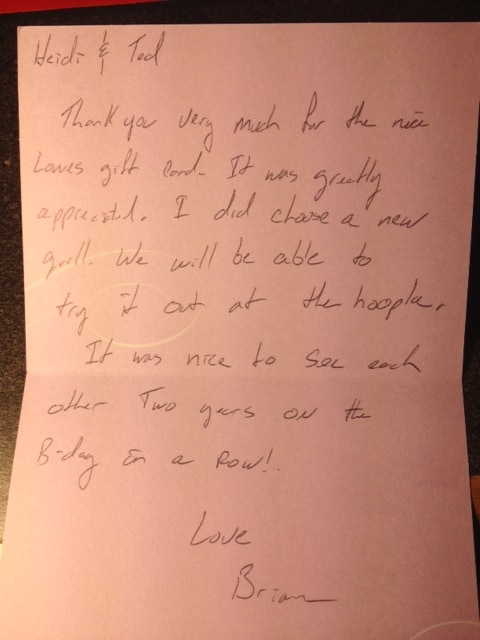 Heidi & Ted
Thank you very much for the nice
Lowes gift card. It was greatly
appreciated. I did choose a new
grill. We will be able to
try it out at the hoopla.
It was nice to see each
other Two years on the
B-day in a row!.
Love
Brian